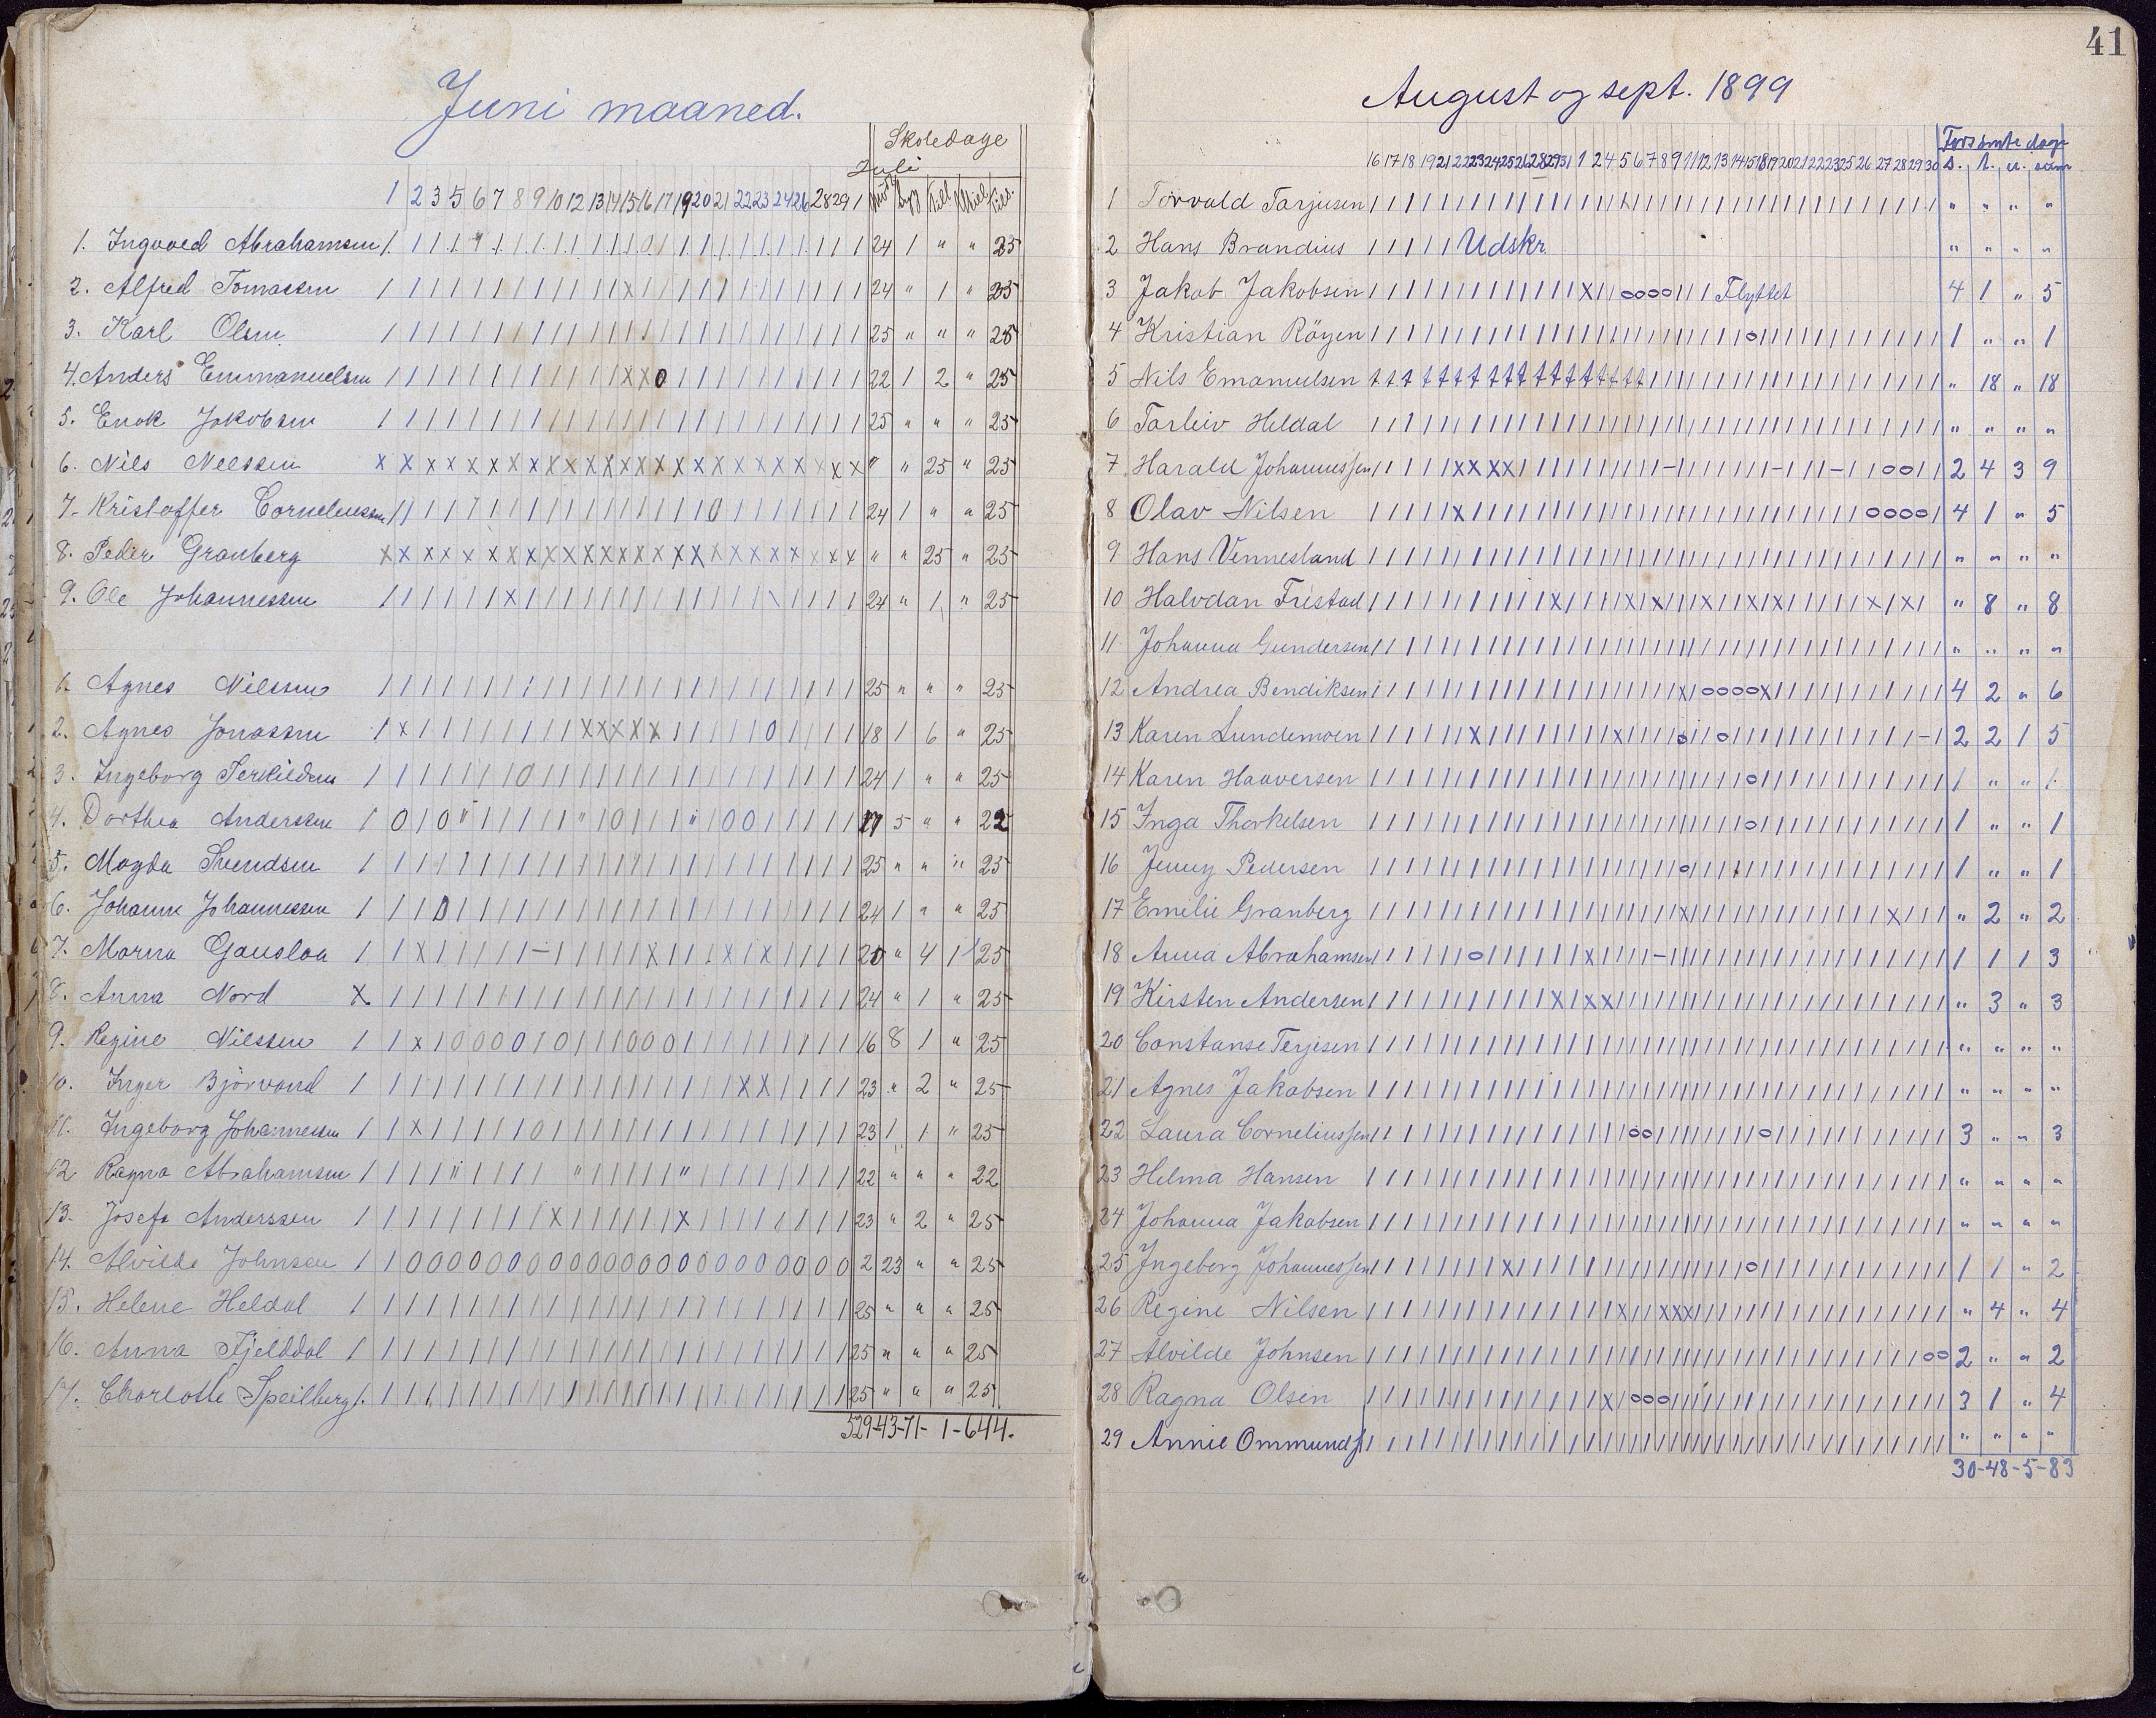 Juni maaned.
Skoledage
Juli
1 2 3 5 6 7 8 9 10 12 13 14 15 16 17 19 20 21 22 23 24 26 28 29 1
1. Ingvoed Abrahamsen 24 1 " " 25
2. Alfred Tomassen 24 " 1 " 25
3. Karl Olsen 25 " " " 25
4. Anders Emmanuelsen 22 1 2 " 25
5. Enok Jakobsen 25 " " " 25
6. Nils Neelssen " " 25 " 25
7. Kristoffer Corneleussen 24 1 " " 25
8. Peder Granberg " " 25 " 25
9. Ole Johannessen 24 " 1 " 25
1. Agnes Nilssen 25 " " " 25
2. Agnes Jonassen 18 1 6 " 25
3. Ingeborg Terkildsen 24 1 " " 25
4. Dorthea Anderssen 17 5 " " 22
5. Magda Svendsen 25 " " " 25
6. Johanne Johannessen 24 1 " " 25
7. Marna Gauslaa 20 " 4 1 25
8. Anna Nord 24 " 1 " 25
9. Regine Nilssen 16 8 1 " 25
10. Inger Bjørvand 23 " 2 " 25
11. Ingeborg Johannessen 23 1 1 " 25
12 Ragna Abrahamsen 22 " " " 22
13. Josefa Anderssen 23 " 2 " 25
14. Alvilde Johnsen 2 23 " " 25
15. Helene Heldal 25 " " " 25
16. Anna Fjelddal 25 " " " 25
17. Charlotte Speilberg 25 " " " 25
529-43-71-1-644.
41
August og sept. 1899
Forsømte dage
16 17 18 19 21 22 23 24 25 26 28 29 31 1 2 4 5 6 7 8 9 11 12 13 14 15 18 19 20 21 22 23 25 26 27 28 29 30 s. l. u. sum
1 Torvald Tarjusen " " " "
2 Hans Brandius Udskr. " " " "
3 Jakob Jakobsen Flyttet 4 1 " 5
4 Kristian Røyen 1 " " 1
5 Nils Emanuelsen " 18 " 18
6 Torleiv Heldal " " " "
7 Harald Johannessen 2 4 3 9
8 Olav Nilsen 4 1 " 5
9 Hans Vennesland " " " "
10 Halvdan Fristad " 8 " 8
11 Johanna Gundersen " " " "
12 Andrea Bendiksen 4 2 " 6
13 Karen Lundemoen 2 2 1 5
14 Karen Haaversen 1 " " 1
15 Inga Thorkelsen 1 " " 1
16 Jenny Pedersen 1 " " 1
17 Emilie Granberg " 2 " 2
18 Anna Abrahamsen 1 1 1 3
19 Kirsten Andersen " 3 " 3
20 Constanse Terjesen " " " "
21 Agnes Jakobsen " " " "
22 Laura Corneliussen 3 " " 3
23 Helma Hansen " " " "
24 Johanna Jakobsen " " " "
25 Ingeborg Johannessen 1 1 " 2
26 Regine Nilsen " 4 " 4
27 Alvilde Johnsen 2 " " 2
28 Ragna Olsen 3 1 " 4
29 Annie Ommunds " " " "
30-48-5-83